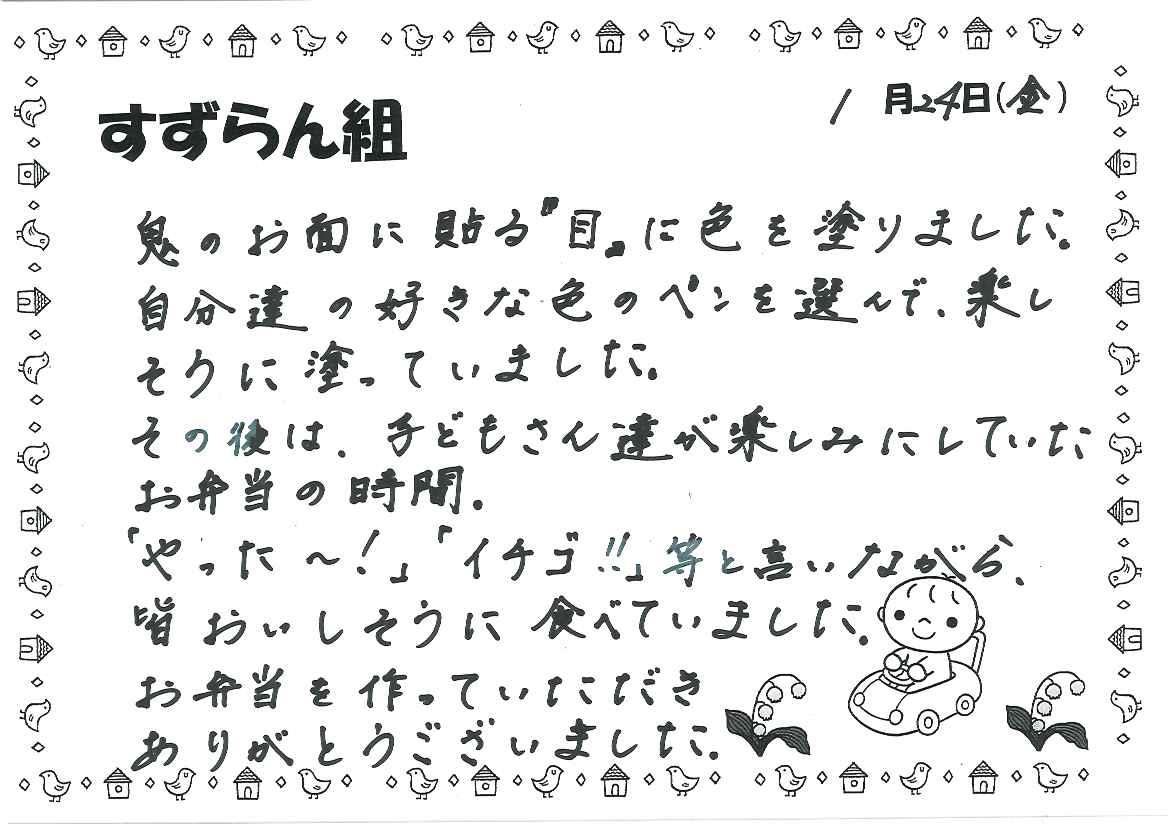 すずらん組
1月24日(金)
鬼のお面に貼る『目』に色を塗りました。
自分達の好きな色のペンを選んで、楽し
そうに塗っていました。
その後は、子どもさん達が楽しみにしていた
お弁当の時間。
「やった〜!」「イチゴ!!」等と言いながら、
皆おいしそうに食べていました。
お弁当を作っていただき
ありがとうございました。